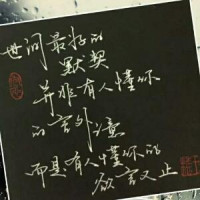 世间最好的
默契
并非有人懂你
的言外之意
而是有人懂你的
欲言又止